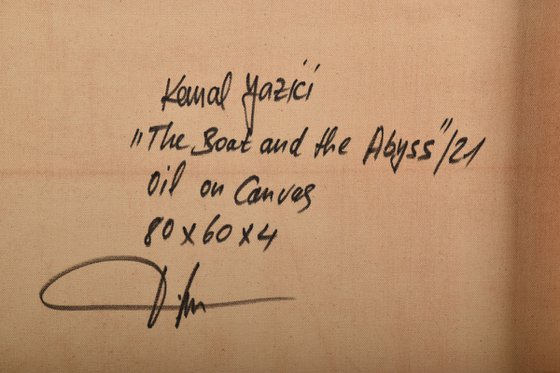 Kemal Yazici
„The Boat and the Abyss"/21
Oil on Canvas
80x60x4